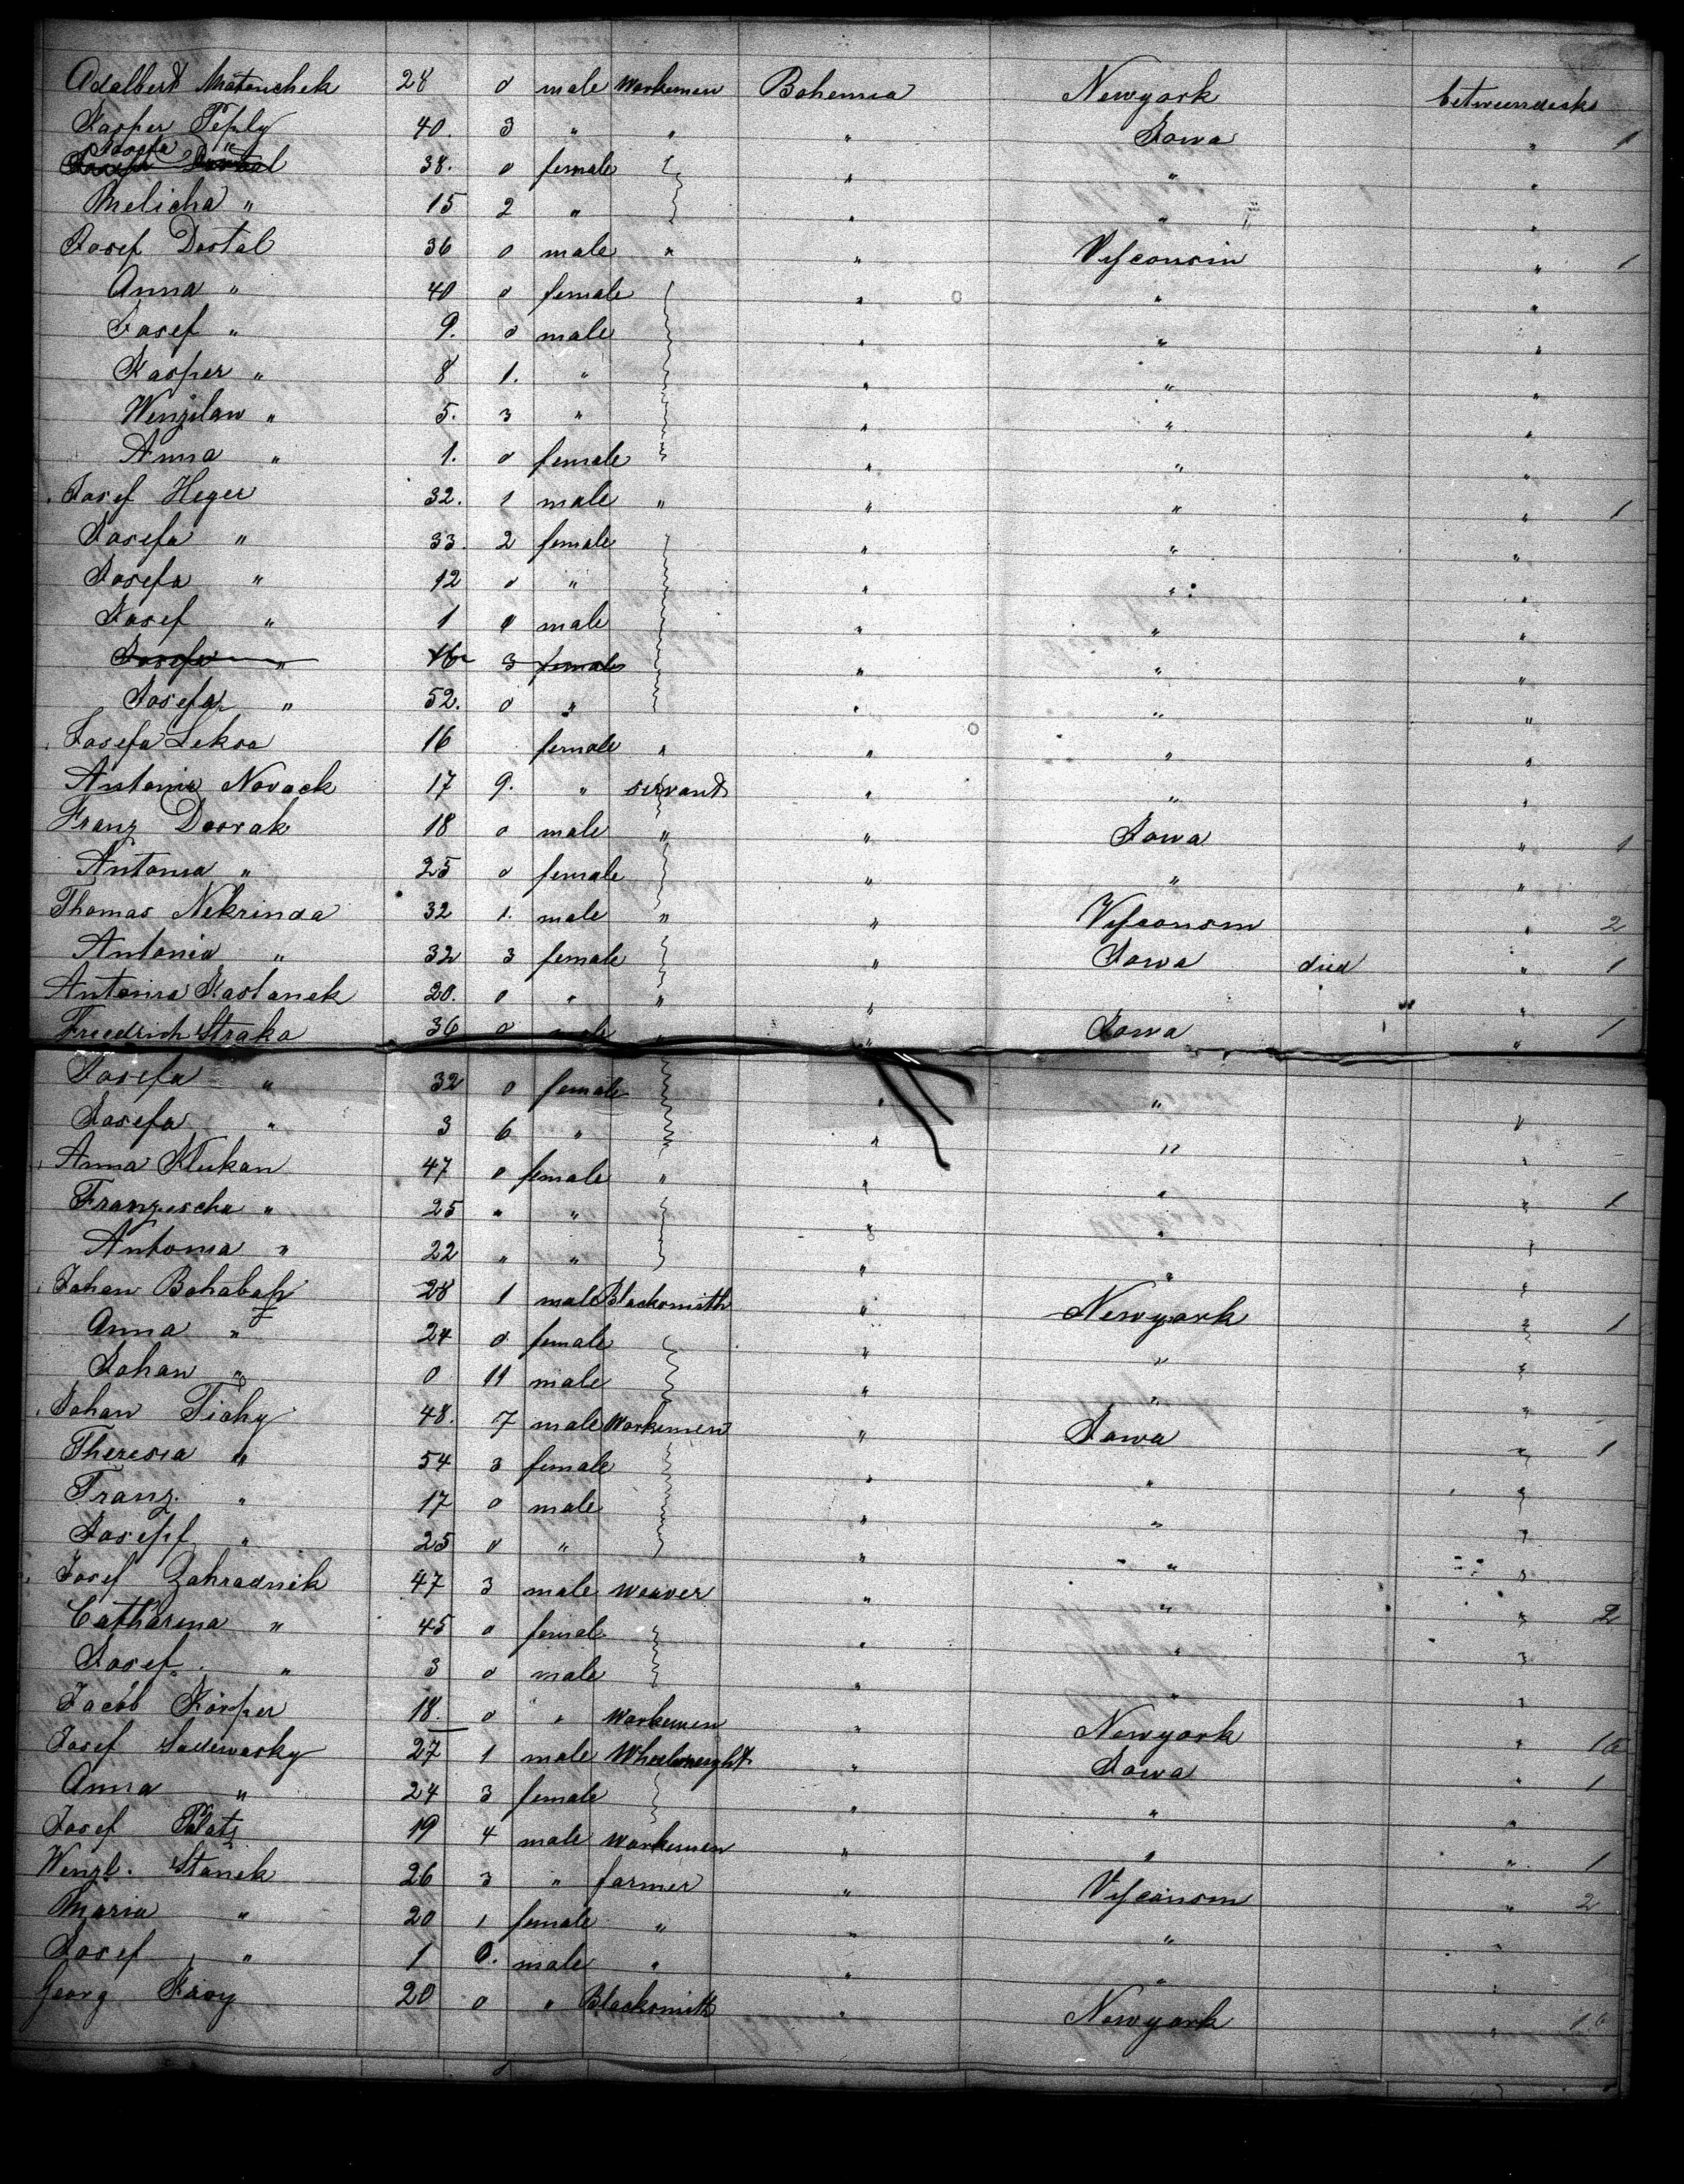 Adalbert Matouschek 28 0 male Workemen Bohemia Newyork betweendecks
Kasper Teply 40. 3 " " " Iowa " 1
Josefa " 38. 0 female " " "
Melicha " 15 2 " " " "
Josef Dostal 36 0 male " " Visconsin " 1
Anna " 40 0 female " " "
Josef " 9. 0 male " " "
Kasper " 8 1. " " " "
Wenzslaw " 5. 3 " " " "
Anna " 1. 0 female " " "
Josef Heger 32. 1 male " " " " 1
Josefa " 33. 2 female " " "
Josefa " 12 0 " " " "
Josef " 1 0 male " " "
Josefa " 16 3 female " " "
Josefa " 52. 0 " " " "
Josefa Leksa 16 female " " " "
Antonia Novack 17 9. " servant " " "
Franz Dvorak 18 0 male " " Iowa " 1
Antonia " 25 0 female " " "
Thomas Nekrinda 32 1. male " " Visconsin " 2
Antonia " 32 3 female " Iowa died " 1
Antonia Kastanek 20. 0 " " " "
Friedrich Straka 36 0 male " " Iowa " 1
Josefa " 32 0 female " " "
Josefa " 3 6 " " " "
Anna Klukan 47 0 female " " " " 1
Franzischa " 25 " " " " "
Antonia " 22 " " " " "
Johan Bohabap 28 1 male Blacksmith " Newyork " 1
Anna " 24 0 female " " "
Johan " 0 11 male " " "
Johan Tichy 48. 7 male Workemen " Iowa " 1
Theresia " 54 3 female " " "
Franz " 17 0 male " " "
Josepf " 25 0 " " " "
Josef Zahradnik 47 3 male weaver " " " 2
Catharina " 45 0 femal " " "
Josef " 3 0 male " " "
Jacob Korper 18. 0 " Workemen " Newyork "
Josef Sadewasky 27 1 male Wheelwreight " Iowa " 1
Anna " 24 3 female " " "
Josef Platz 19 4 male Workemen " " " 1
Wenzl. Stanek 26 3 " farmer " Visconsin " 2
Maria " 20 1 female " " " "
Josef " 1 0. male " " " "
Georg Kroy 20 0 " Blacksmith " Newyork "